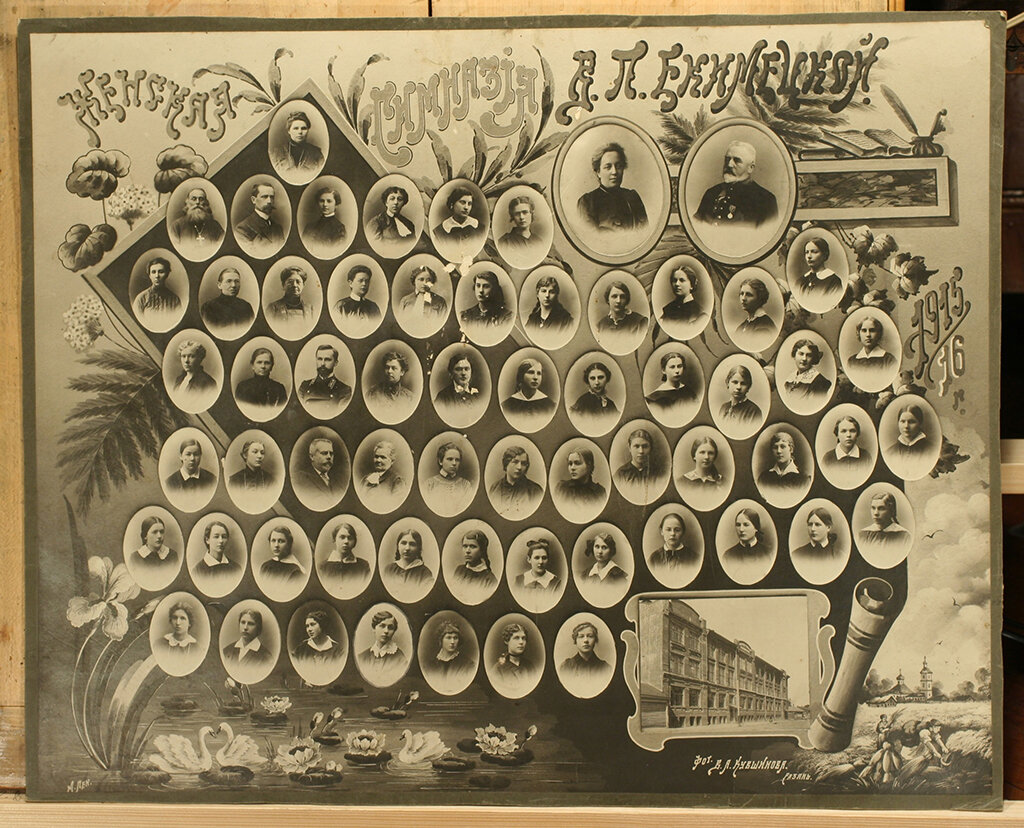 Женская Гимназія В. П. Екимецкой.
1915/16 г.
Фот. В. А. Кувшинова.
Рязань.